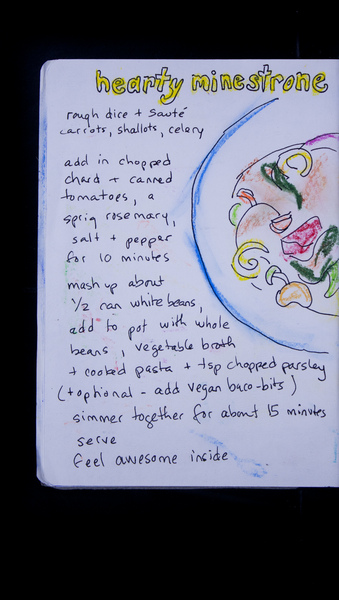 hearty minestrone
rough dice + sauté
carrots, shallots, celery
add in chopped
chard + canned
tomatoes, a
sprig rosemary,
salt + pepper
for 10 minutes
mash up about
1/2 can white beans,
add to pot with whole
beans, vegetable broth
+ cooked pasta + tsp chopped parsley
(+optional - add vegan baco-bits)
simmer together for about 15 minutes
serve
feel awesome inside